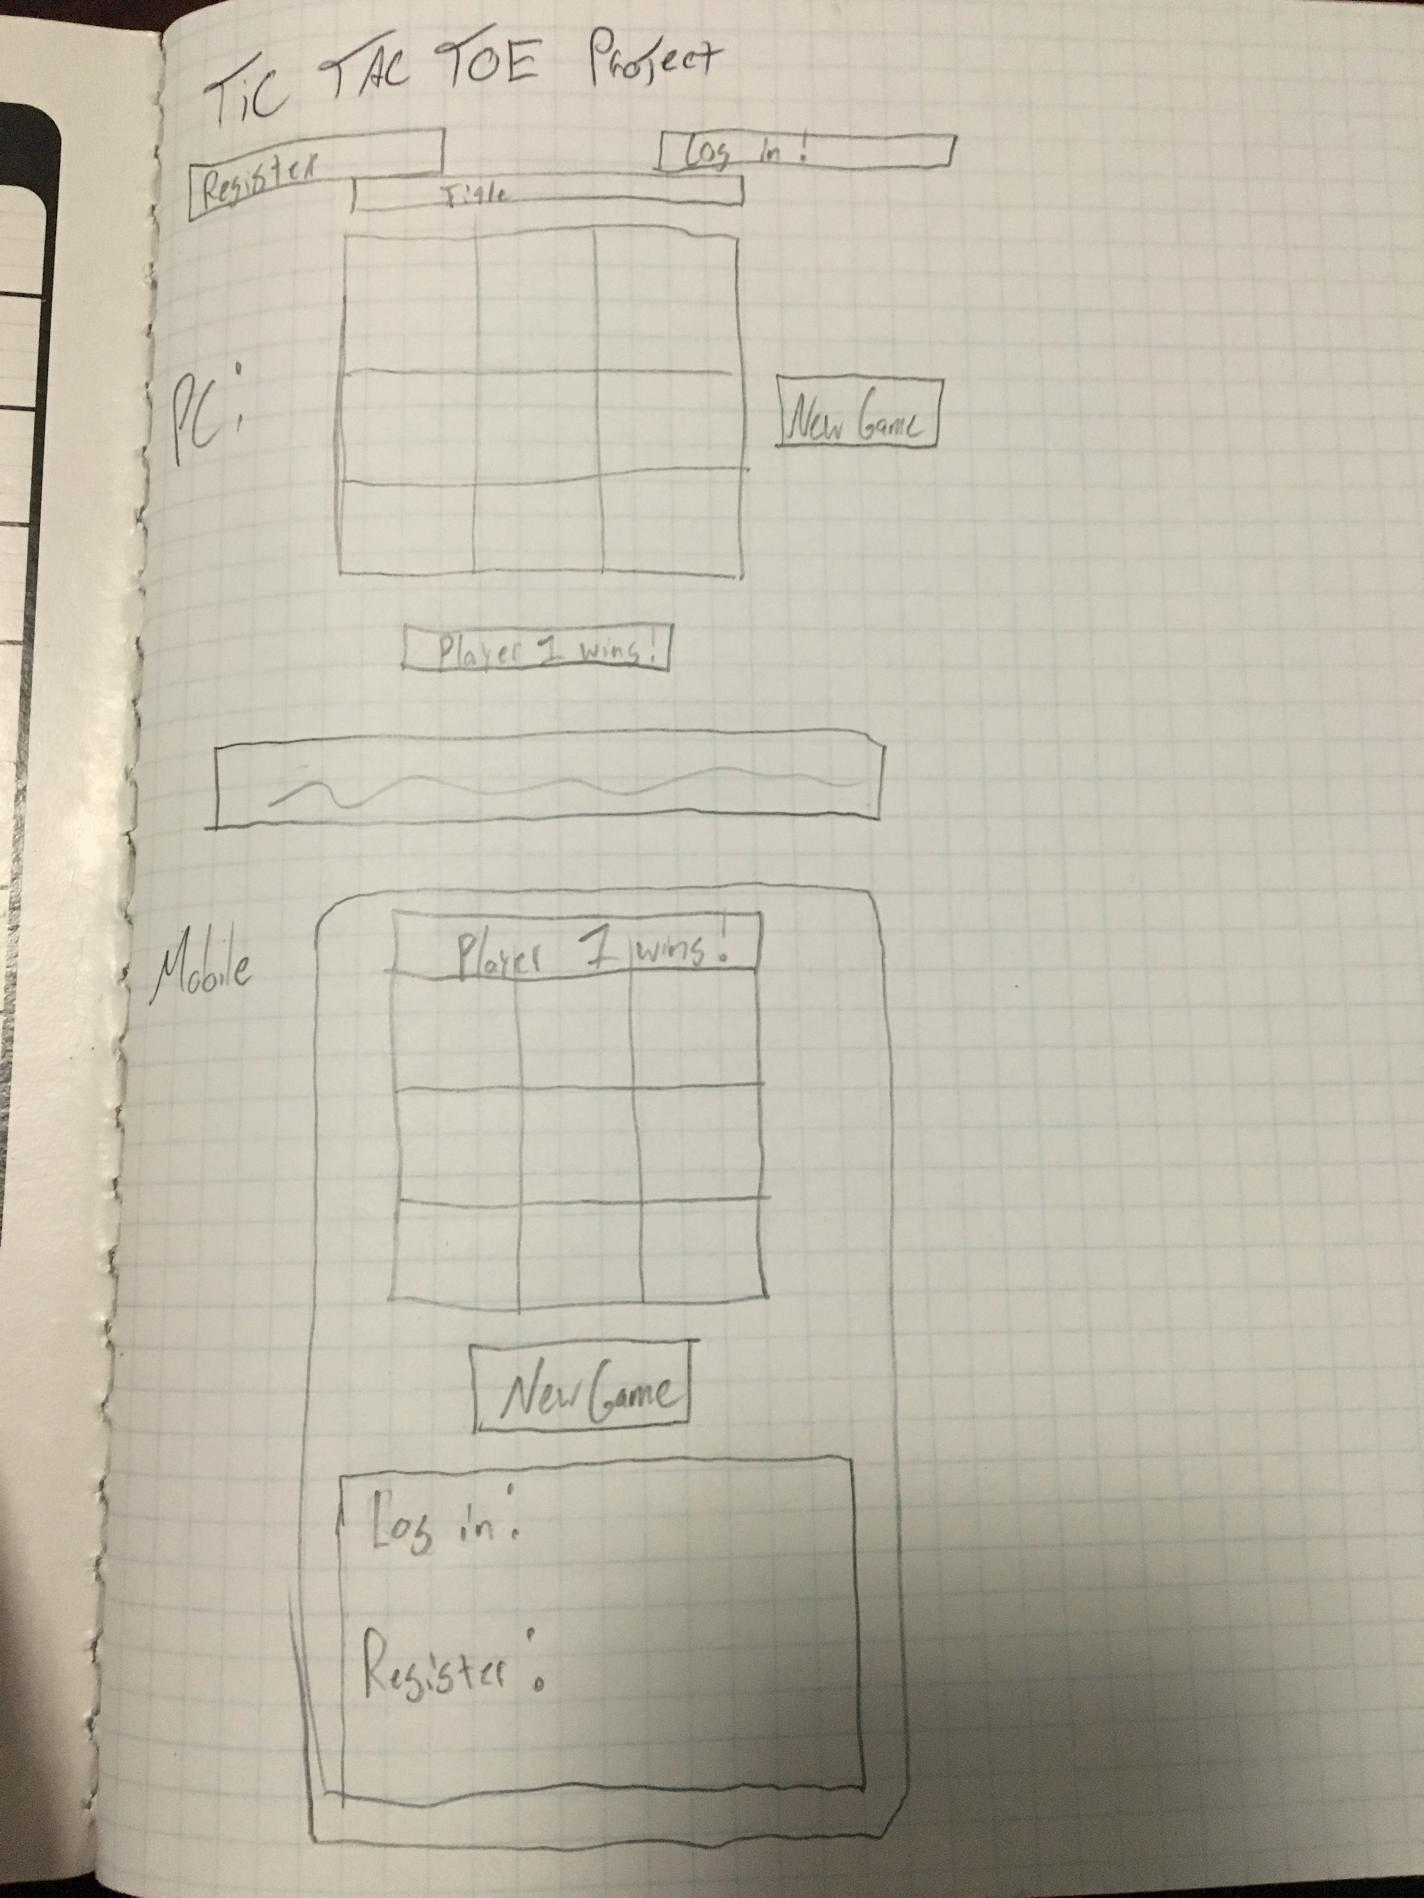 TiC TAC TOE Project
Register
Log in!
Title
PC:
New Game
Player 1 wins!
Mobile
Player 1 wins!
New Game
Log in:
Register: